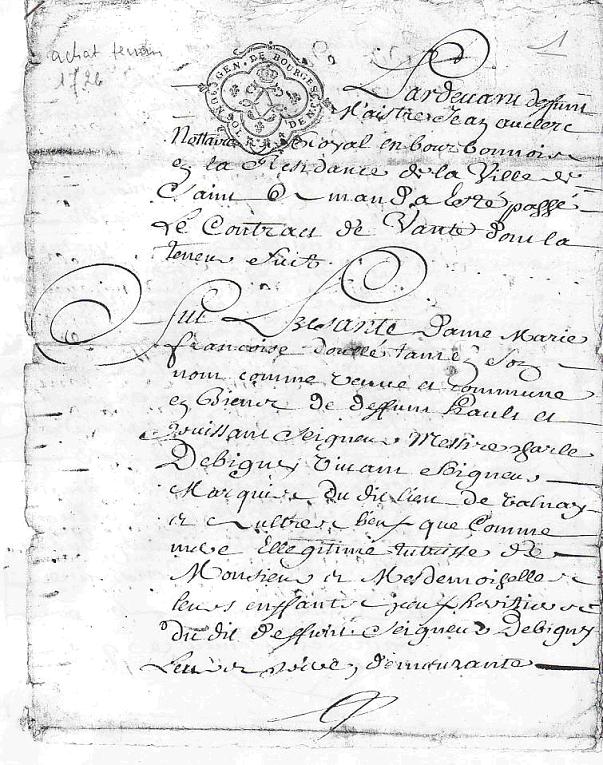 achat terrin
1726
1
GEN. DE BOURGES
Pardevant deffunt
Maistre Jean auclerc
Nottaire Royal en bourbonnois
en la Residance de la Ville de
Saint Amand a esté passé
Le Contract de Vante Dont la
teneur Suit
fut Presante Dame Marie
francoise doullé tant en son
nom comme veuve et commune
en Biens de deffunt hault et
puissant Seigneur Messire
Debigny vivant Seigneur
Marquis du dit lieu de
et aultres lieux que Comme
mere Ellegitime tutrisse de
Monsieur et Mesdemoiselles
leurs enffants
du dit deffunt Seigneur Debigny
Leur pere, demeurante